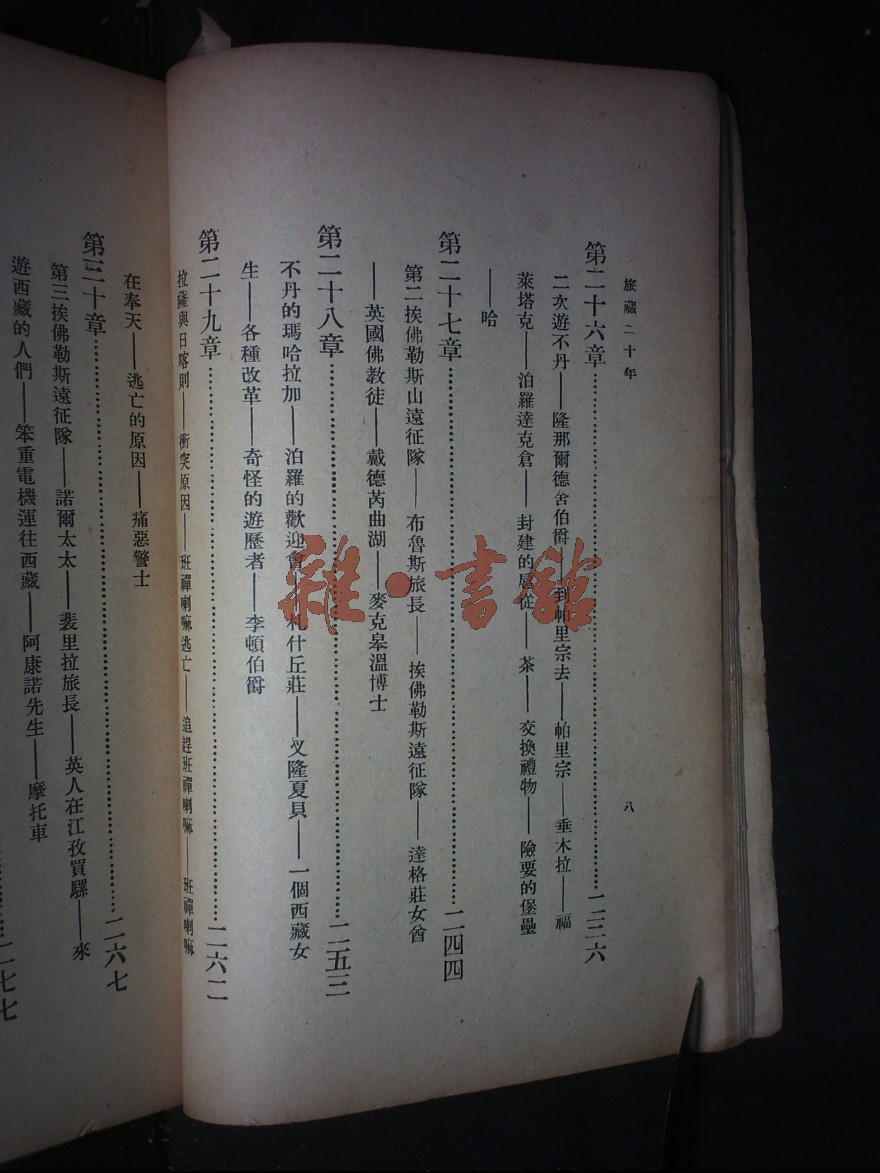 旅藏二十年
八
第二十六章……二二六
二次遊不丹——隆那爾德舍伯爵——到帕里宗去——帕里宗——垂木拉——福
萊塔克——泊羅達克倉——封建的扈從——茶——交換禮物——險要的堡壘
——哈
第二十七章……二四四
第二挨佛勒斯山遠征隊——布魯斯旅長——挨佛勒斯遠征隊——達格莊女酋
——英國佛教徒——戴德芮曲湖——麥克皋溫博士
第二十八章……二五三
不丹的瑪哈拉加——泊羅的歡迎會——札什丘莊——叉隆夏貝——一個西藏女
生——各種改革——奇怪的遊歷者——李頓伯爵
第二十九章……二六二
拉薩與日喀則——衝突原因——班禪喇嘛逃亡——追趕班禪喇嘛——班禪喇嘛
在奉天——逃亡的原因——痛惡警士
第三十章……二六七
第三挨佛勒斯遠征隊——諾爾太太——裴里拉旅長——英人在江孜買騾——來
遊西藏的人們——笨重電機運往西藏——阿康諾先生——摩托車
二七七
雜·書館